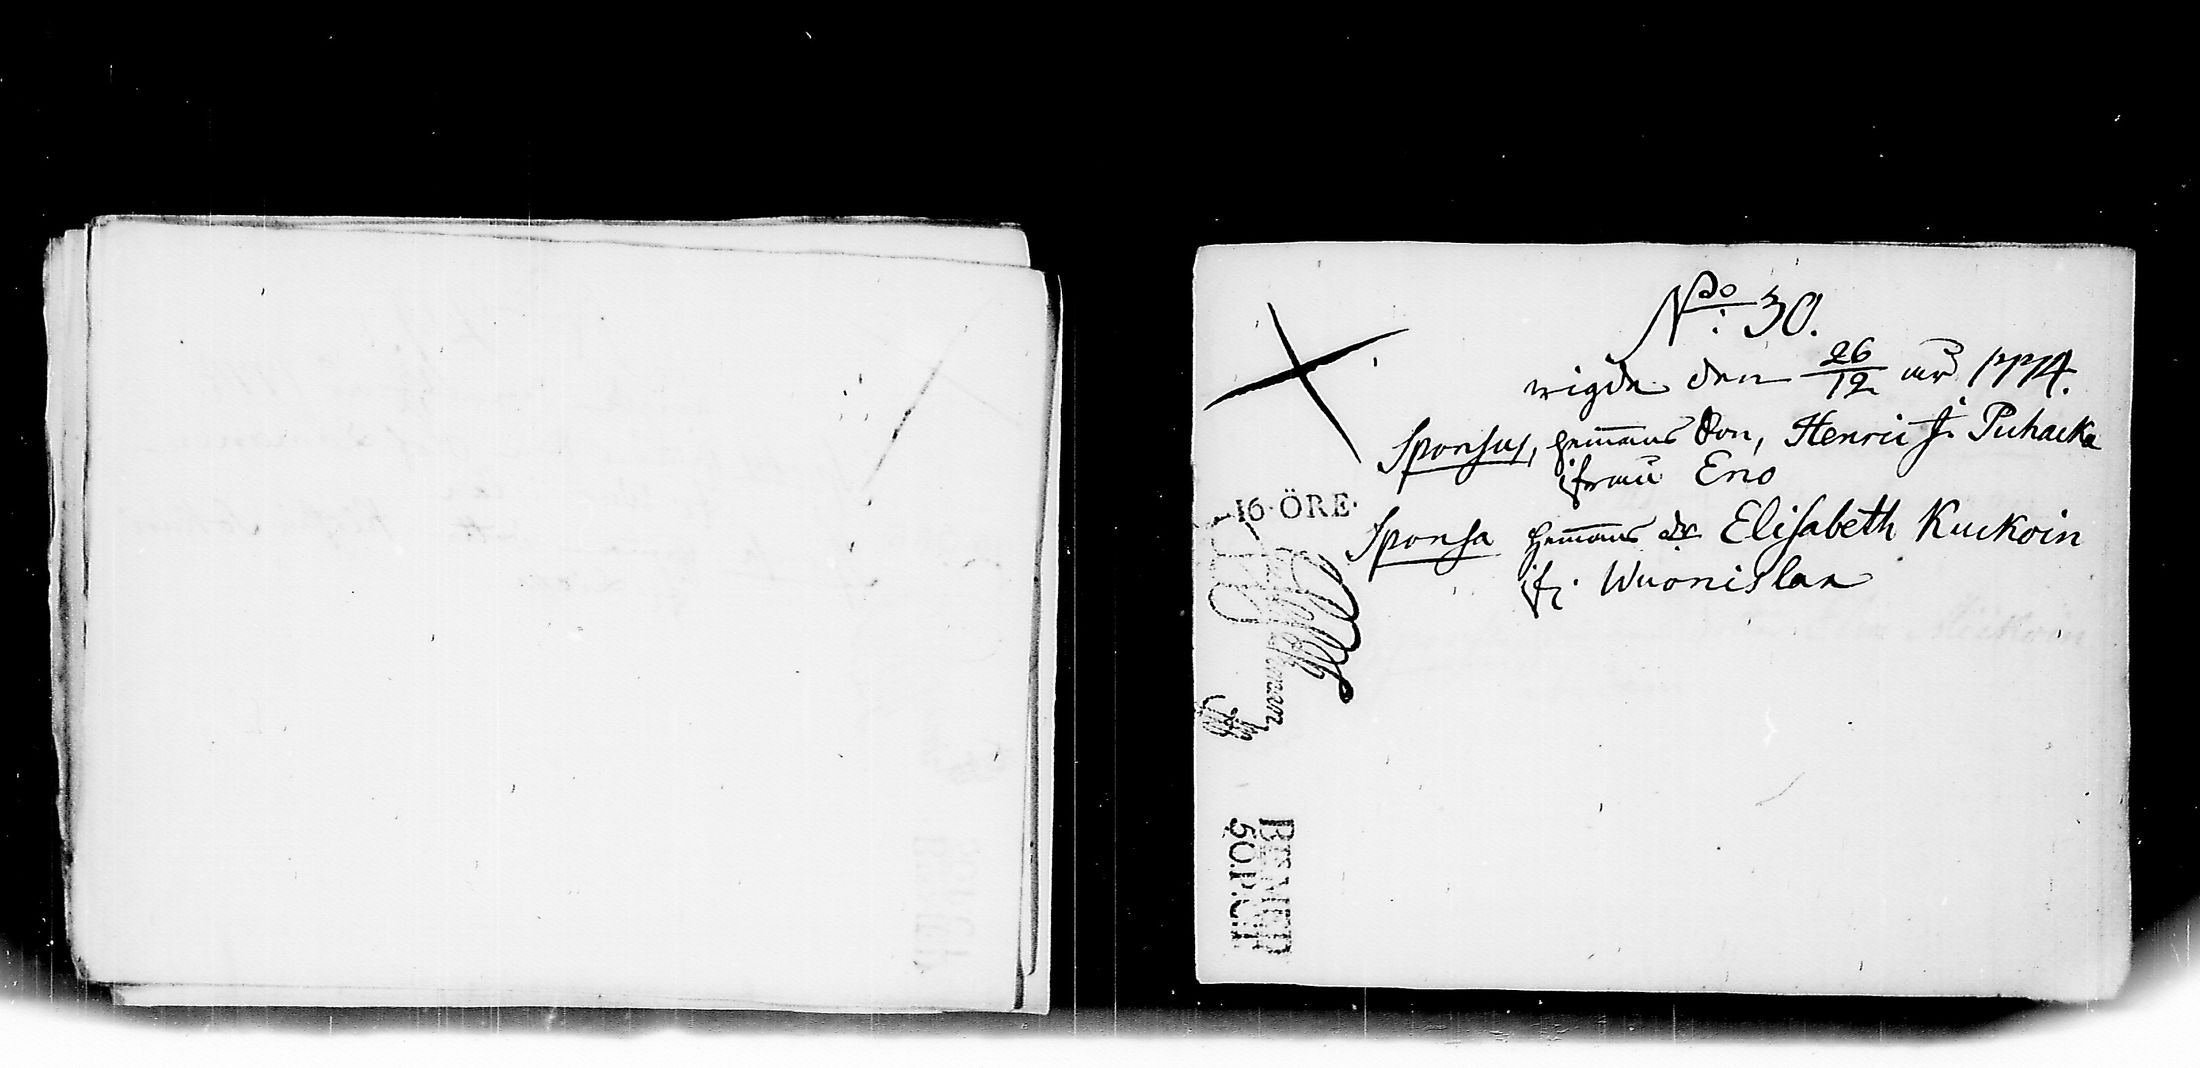 No: 30.
wigde den 26/12 año 1774.
Sponsus, hem̄ans Son, Henric J. Puhacka
ifrån Eno
16·ÖRE·
Sponsa hem̄ans dr Elisabeth Kuckoin
if: Wuonislax
BEVMED
50.P.CT